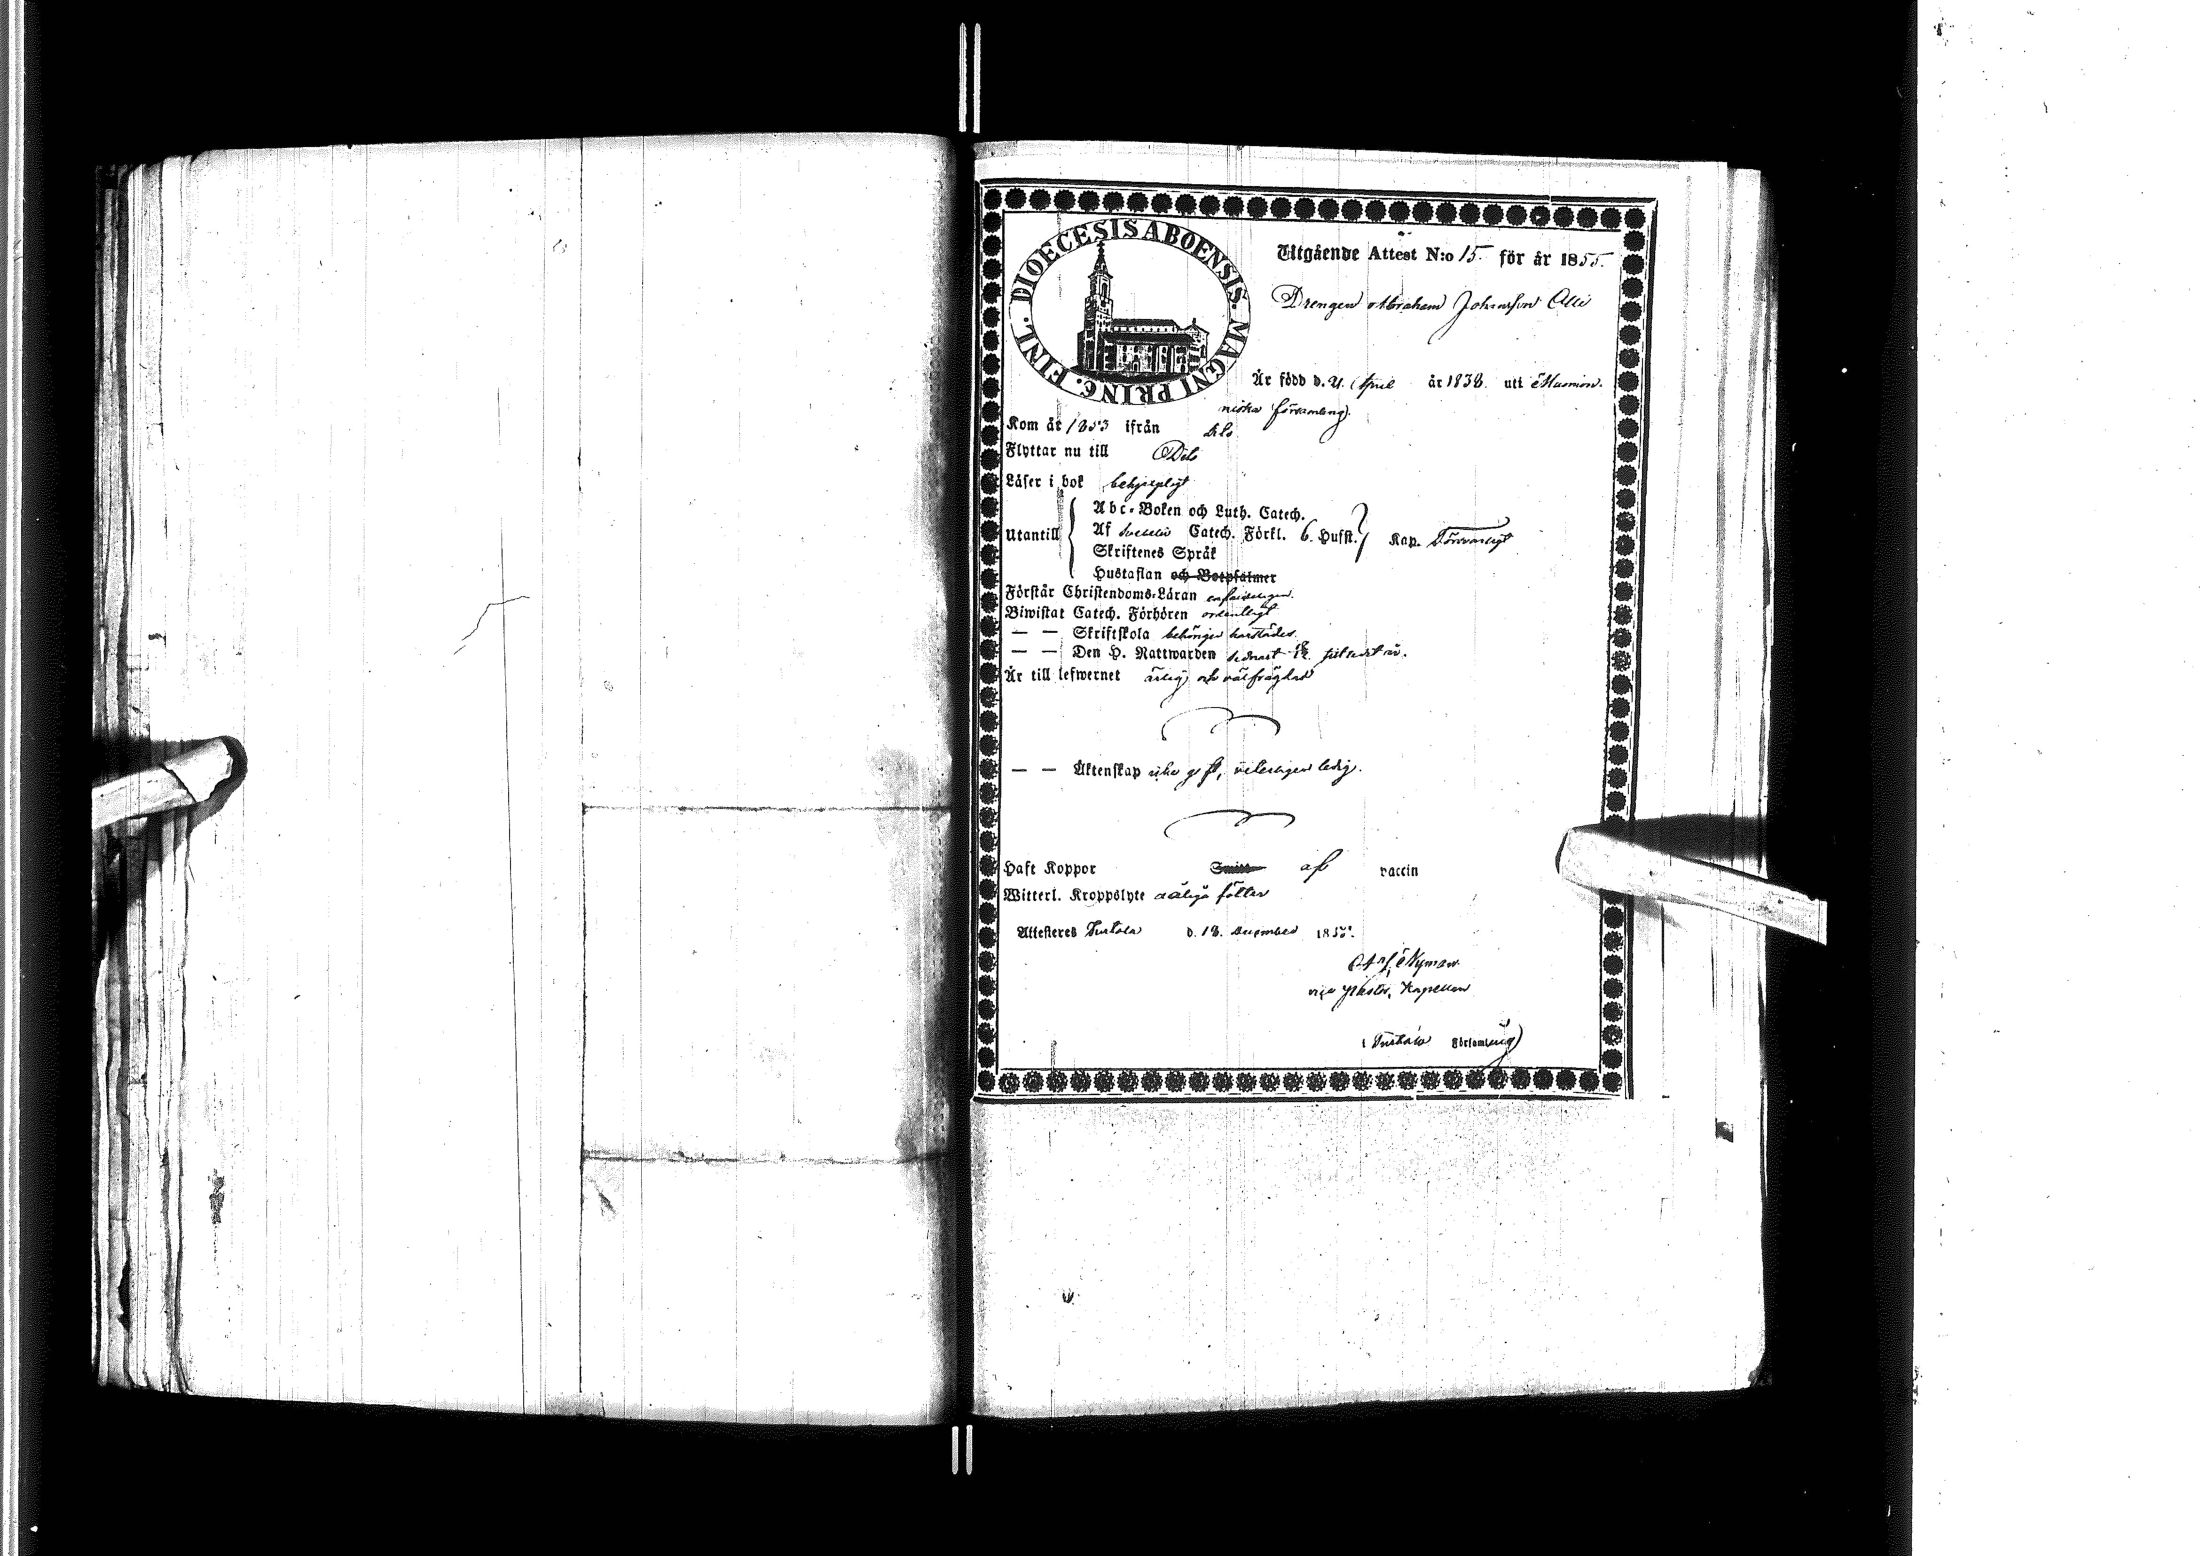 DIOECESIS ABOENSIS. MAGNI PRINC. FINL.
Utgående Attest N:o 15 för år 1855.
Drengen Abraham Johansson Olli
Är född d. 21 April år 1838. uti
niska församling.
Kom år 1853 ifrån
Flyttar nu till
Läser i bok begripligt
Abc-Boken och Luth. Catech.
Utantill Af Svebelii Catech. Förkl. 6. Hufst. Kap. Försvarligt
Skriftenes Språk
Hustaflan och Botpsalmer
Förstår Christendoms-Läran enfaldeligen.
Biwistat Catech. Förhören ordentligt
— — Skriftskola behörigen härstädes.
— — Den H. Nattwarden sednast
Är till lefwernet ärlig och välfrägdad
— — Äktenskap icke gift, veterligen ledig.
Haft Koppor Smitt af vaccin
Witterl. Kroppslyte fötter
Attesteres d. 18. December 1855.
Nyman
vice Pastor, Kapellan
i Församling